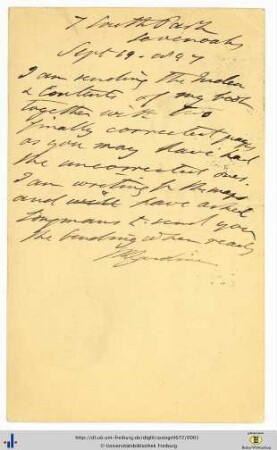 7 South Park
Sevenoaks
Sept 19. 1897
I am sending the Index
& Contents of my book
together with two
finally corrected pages
as you may have had
the uncorrected ones.
I am writing to
and will have asked
Longmans to send you
the binding when ready
http://dl.ub.uni-freiburg.de/diglit/autogr0677/0003
© Universitätsbibliothek Freiburg